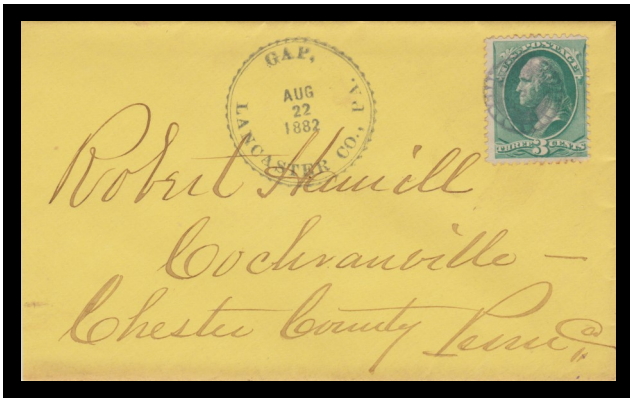 GAP,
LANCASTER CO., PA.
AUG
22
1882
U.S. POSTAGE
THREE 3 CENTS
Robert Hamill
Cochranville —
Chester County Penn